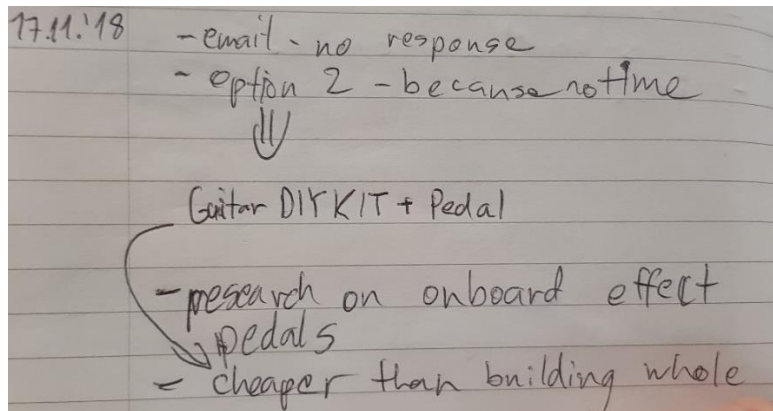 17.11.'18
- email - no response
- option 2 - because no time
Guitar DIY KIT + Pedal
- research on onboard effect
pedals
- cheaper than building whole